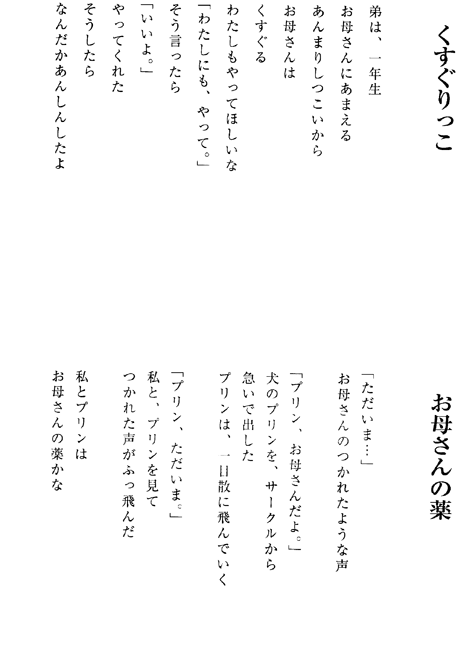 くすぐりっこ
弟は、一年生
お母さんにあまえる
あんまりしつこいから
お母さんは
くすぐる
わたしもやってほしいな
「わたしにも、やって。」
そう言ったら
「いいよ。」
やってくれた
そうしたら
なんだかあんしんしたよ
お母さんの薬
「ただいま…」
お母さんのつかれたような声
「プリン、お母さんだよ。」
犬のプリンを、サークルから
急いで出した
プリンは、一目散に飛んでいく
「プリン、ただいま。」
私と、プリンを見て
つかれた声がふっ飛んだ
私とプリンは
お母さんの薬かな